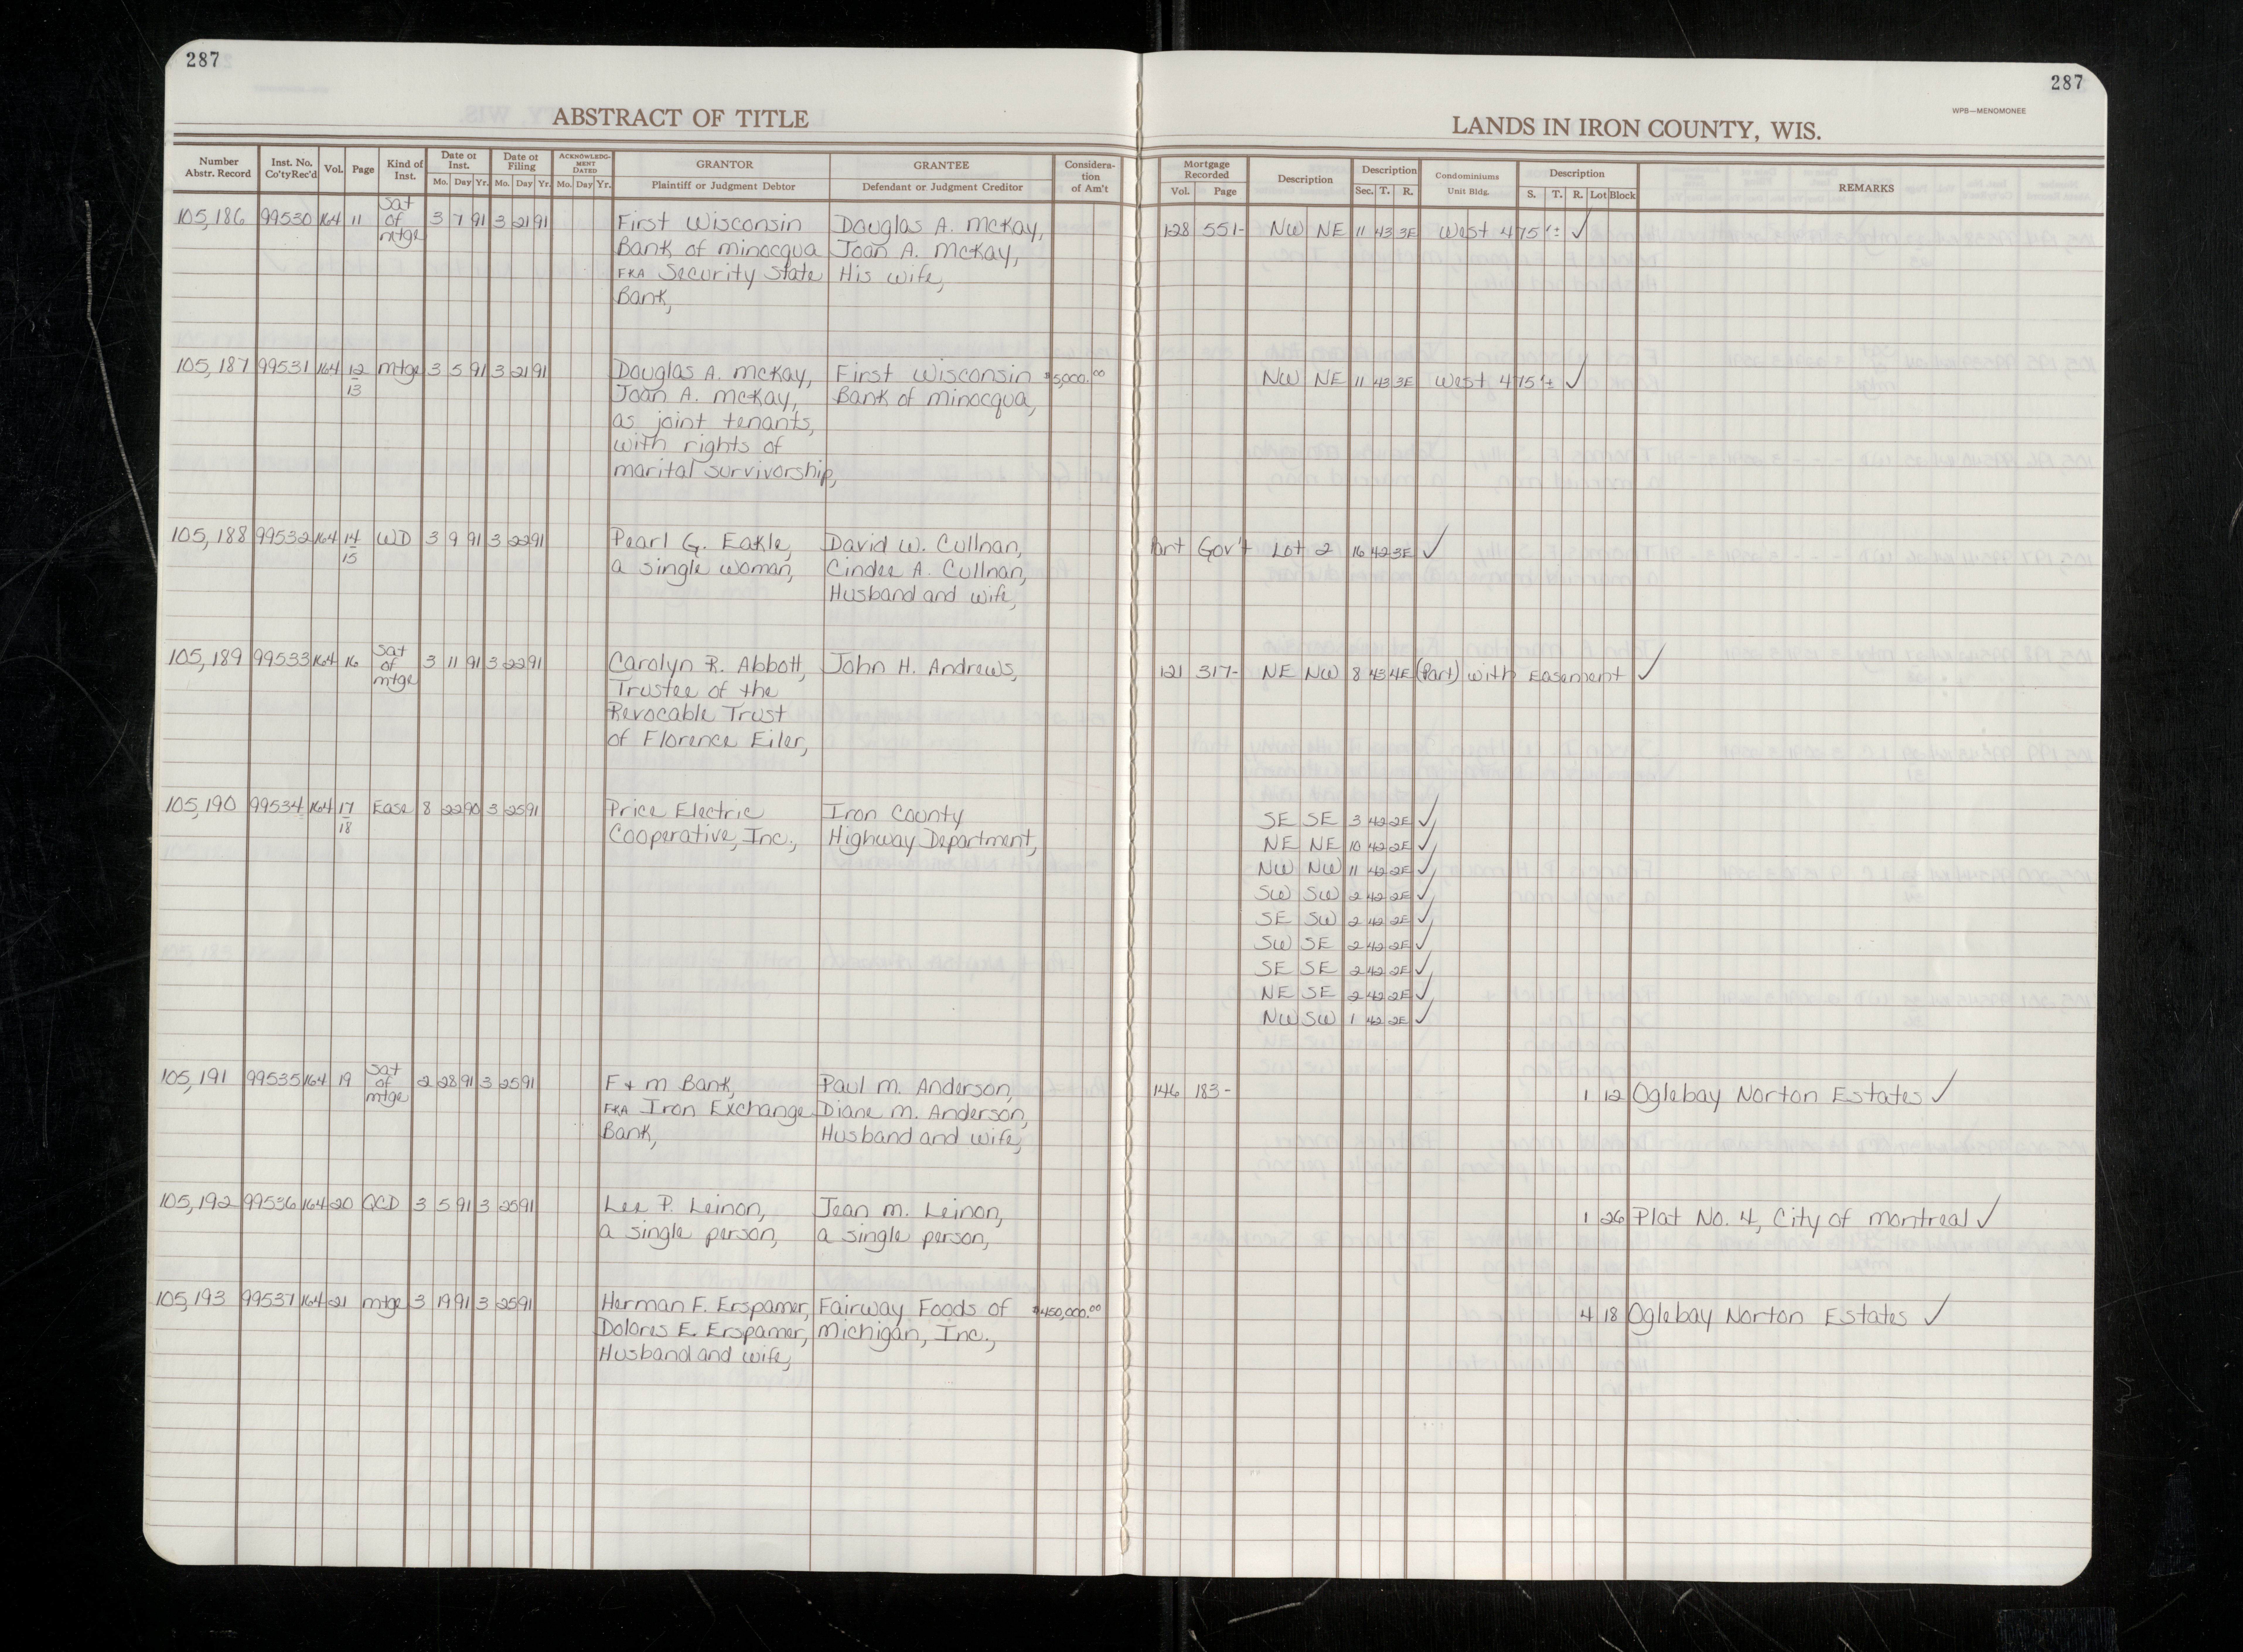 287
287
WPB—MENOMONEE
ABSTRACT OF TITLE
LANDS IN IRON COUNTY, WIS.
Number Abstr. Record Inst. No. Co'ty Rec'd Vol. Page Kind of Inst. Date of Inst. Mo. Day Yr. Date of Filing Mo. Day Yr. ACKNOWLEDGMENT DATED Mo. Day Yr. GRANTOR Plaintiff or Judgment Debtor GRANTEE Defendant or Judgment Creditor Consideration of Am't Mortgage Recorded Vol. Page Description Description Sec. T. R. Condominiums Unit Bldg. Description S. T. R. Lot Block REMARKS
105,186 99530 164 11 Sat of mtge 3 7 91 3 21 91 First Wisconsin Douglas A. McKay, 128 551- NW NE 11 43 3E West 475'± ✓
Bank of Minocqua Joan A. McKay,
FKA Security State His wife,
Bank,
105,187 99531 164 12-13 mtge 3 5 91 3 21 91 Douglas A. McKay, First Wisconsin $5,000.00 NW NE 11 43 3E West 475'± ✓
Joan A. McKay, Bank of Minocqua,
as joint tenants,
with rights of
marital survivorship,
105,188 99532 164 14-15 WD 3 9 91 3 22 91 Pearl G. Eakle, David W. Cullnan, Part Gov't Lot 2 16 42 3E ✓
a single woman, Cindee A. Cullnan,
Husband and wife,
105,189 99533 164 16 Sat of mtge 3 11 91 3 22 91 Carolyn R. Abbott, John H. Andrews, 121 317- NE NW 8 43 4E (Part) with Easement ✓
Trustee of the
Revocable Trust
of Florence Eiler,
105,190 99534 164 17-18 Ease 8 22 90 3 25 91 Price Electric Iron County SE SE 3 42 2E ✓
Cooperative, Inc., Highway Department, NE NE 10 42 2E ✓
NW NW 11 42 2E ✓
SW SW 2 42 2E ✓
SE SW 2 42 2E ✓
SW SE 2 42 2E ✓
SE SE 2 42 2E ✓
NE SE 2 42 2E ✓
NW SW 1 42 2E ✓
105,191 99535 164 19 Sat of mtge 2 28 91 3 25 91 F + M Bank, Paul M. Anderson, 146 183- 1 12 Oglebay Norton Estates ✓
FKA Iron Exchange Diane M. Anderson,
Bank, Husband and wife,
105,192 99536 164 20 QCD 3 5 91 3 25 91 Lee P. Leinon, Jean M. Leinon, 1 26 Plat No. 4, City of Montreal ✓
a single person, a single person,
105,193 99537 164 21 mtge 3 19 91 3 25 91 Herman F. Erspamer, Fairway Foods of $450,000.00 4 18 Oglebay Norton Estates ✓
Dolores E. Erspamer, Michigan, Inc.,
Husband and wife,